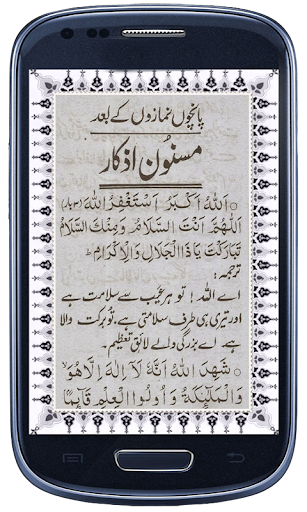 پانچوں نمازوں کے بعد
مسنُون اذکار
اَللهُ اَكْبَرُ اَسْتَغْفِرُ اللهَ (۳ بار)
اَللّٰهُمَّ اَنْتَ السَّلَامُ وَمِنْكَ السَّلَامُ
تَبَارَكْتَ يَا ذَا الْجَلَالِ وَالْاِكْرَامِ ط
ترجمہ:
اے اللہ! تو ہر عیب سے سلامت ہے
اور تیری ہی طرف سلامتی ہے، تو برکت والا
ہے۔ اے بزرگی والے لائقِ تعظیم۔
شَهِدَ اللهُ اَنَّهٗ لَآ اِلٰهَ اِلَّا هُوَ
وَالْمَلٰٓئِكَةُ وَاُولُوا الْعِلْمِ قَآئِمًا